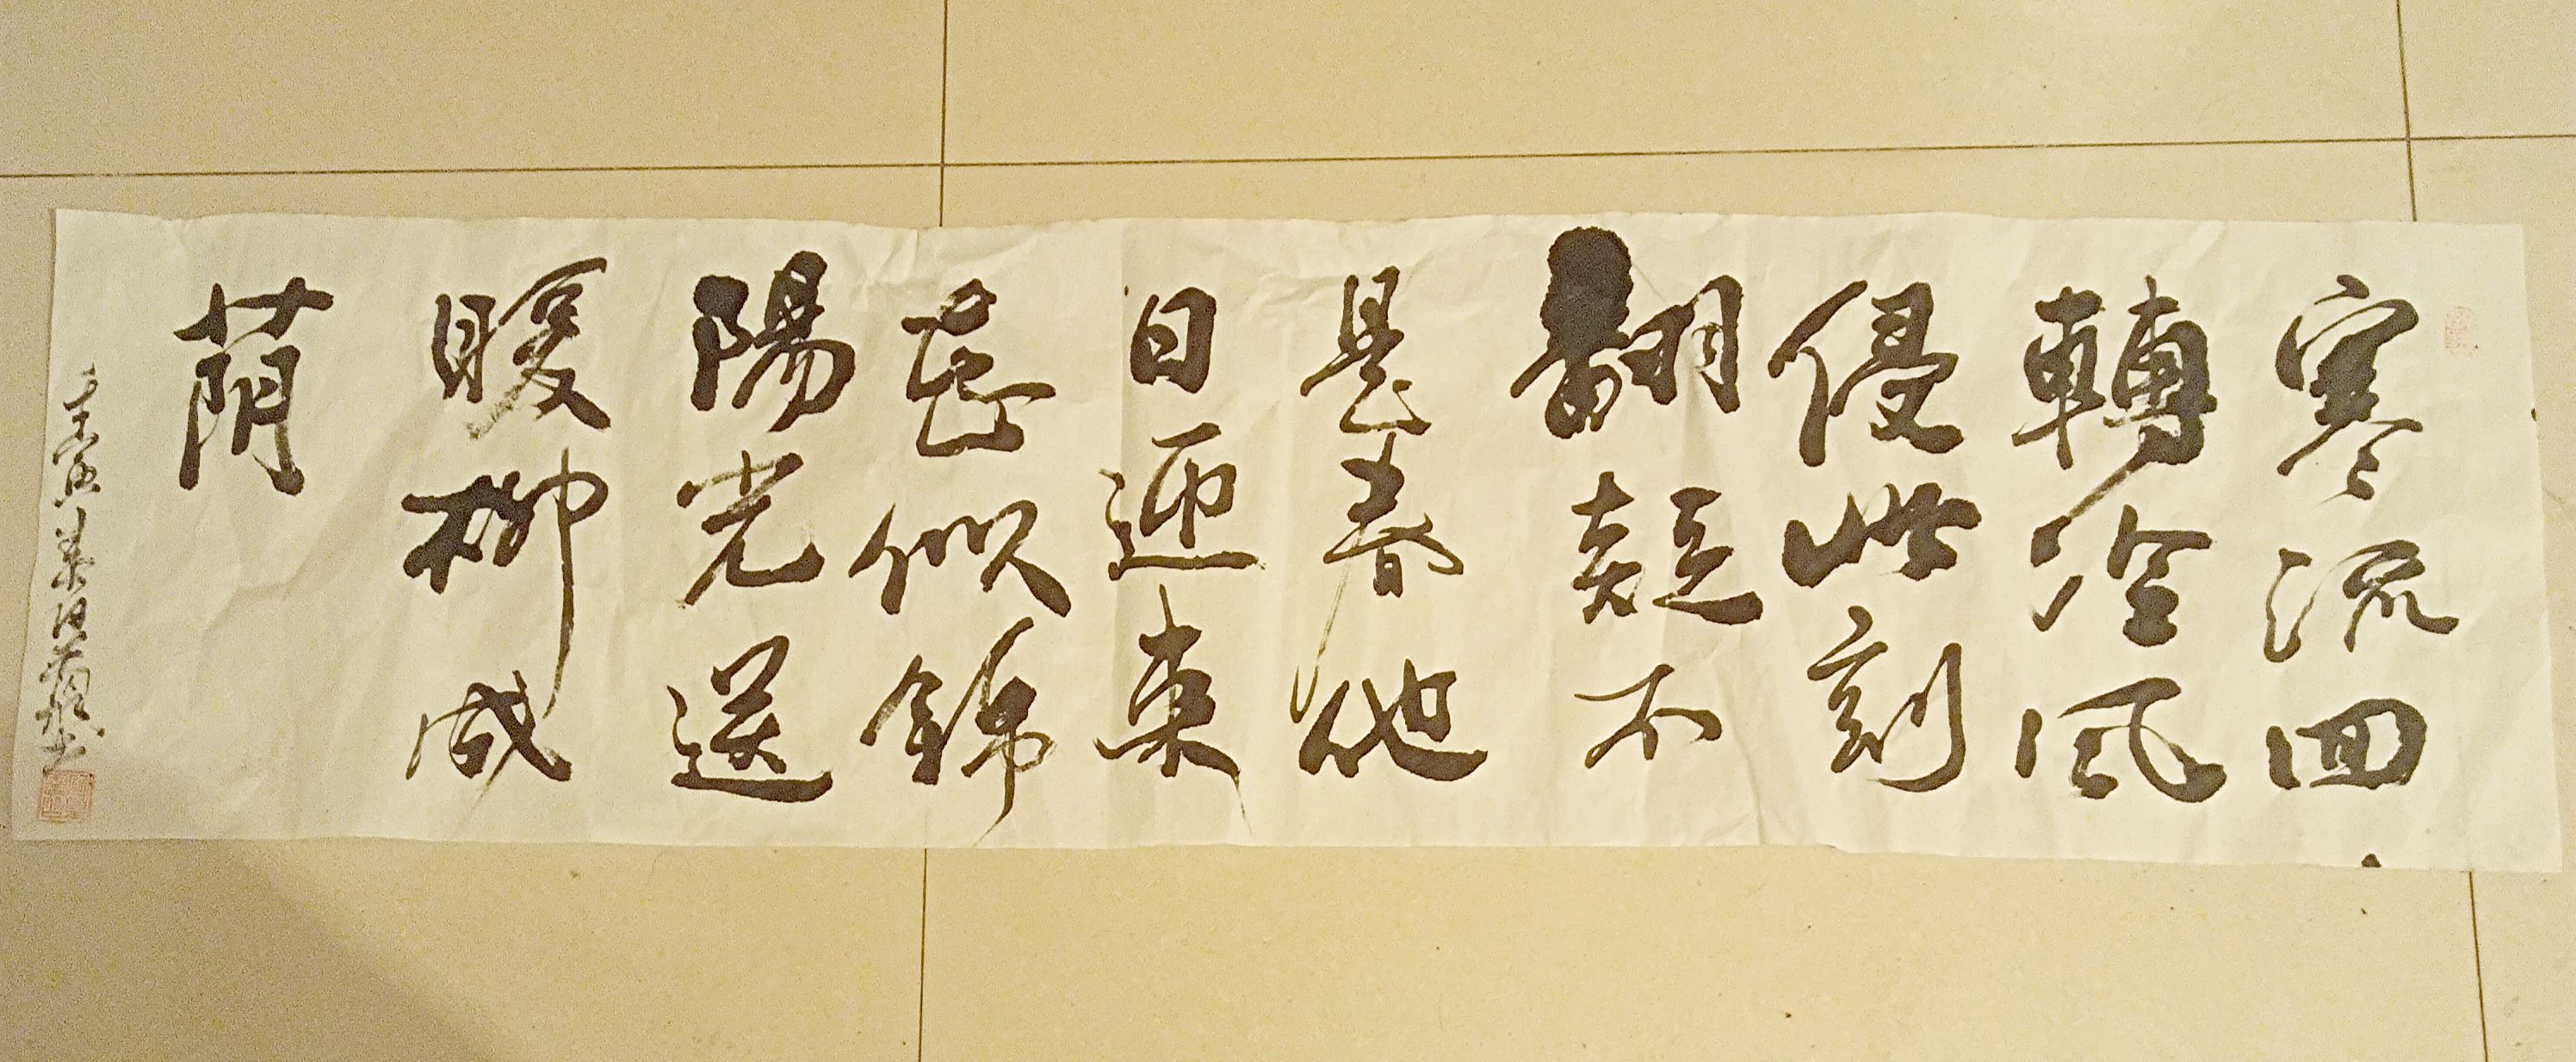 寒流回
轉冷風
侵此刻
翻疑不
是春他
日迎東
君似錦
陽光送
暖柳成
蔭
壬寅